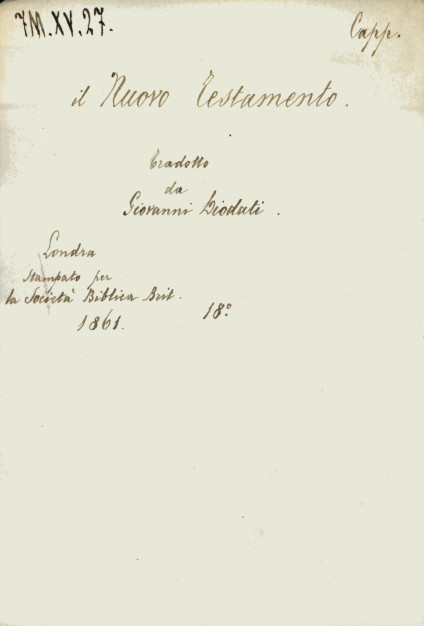 7M.XV.27.
Capp.
il Nuovo Testamento.
Tradotto
da
Giovanni Diodati.
Londra
Stampato per
la Società Biblica Brit.
1861.
18º